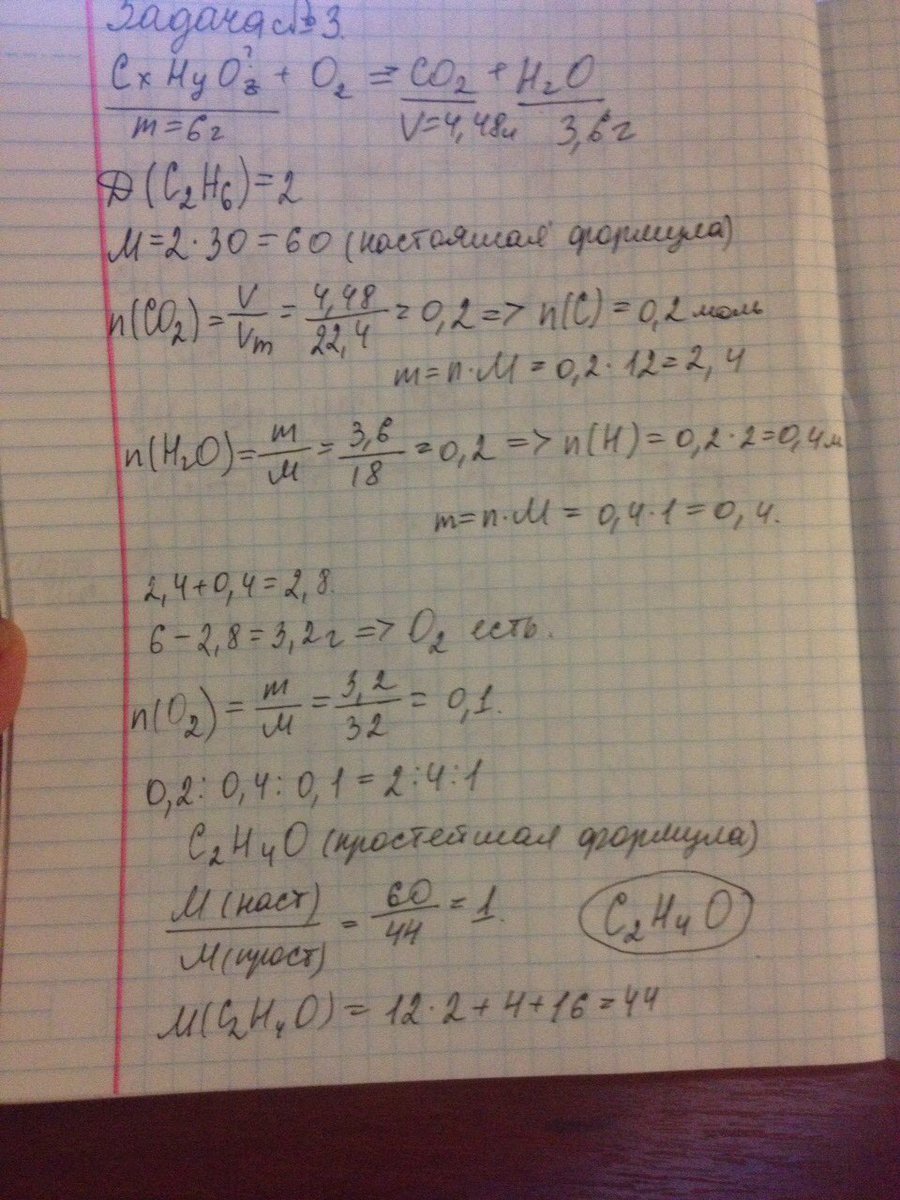 Задача №3.
CxHyOz? + O₂ = CO₂ + H₂O
m=6г V=4,48л 3,6г
D(C₂H₆)=2
M=2·30=60 (настоящая формула)
n(CO₂)=V/Vm=4,48/22,4=0,2=>n(C)=0,2 моль
m=n·M=0,2·12=2,4
n(H₂O)=m/M=3,6/18=0,2=>n(H)=0,2·2=0,4м
m=n·M=0,4·1=0,4.
2,4+0,4=2,8.
6-2,8=3,2г=>O₂ есть.
n(O₂)=m/M=3,2/32=0,1.
0,2:0,4:0,1=2:4:1
C₂H₄O (простейшая формула)
M(наст)/M(прост)=60/44=1. C₂H₄O
M(C₂H₄O)=12·2+4+16=44